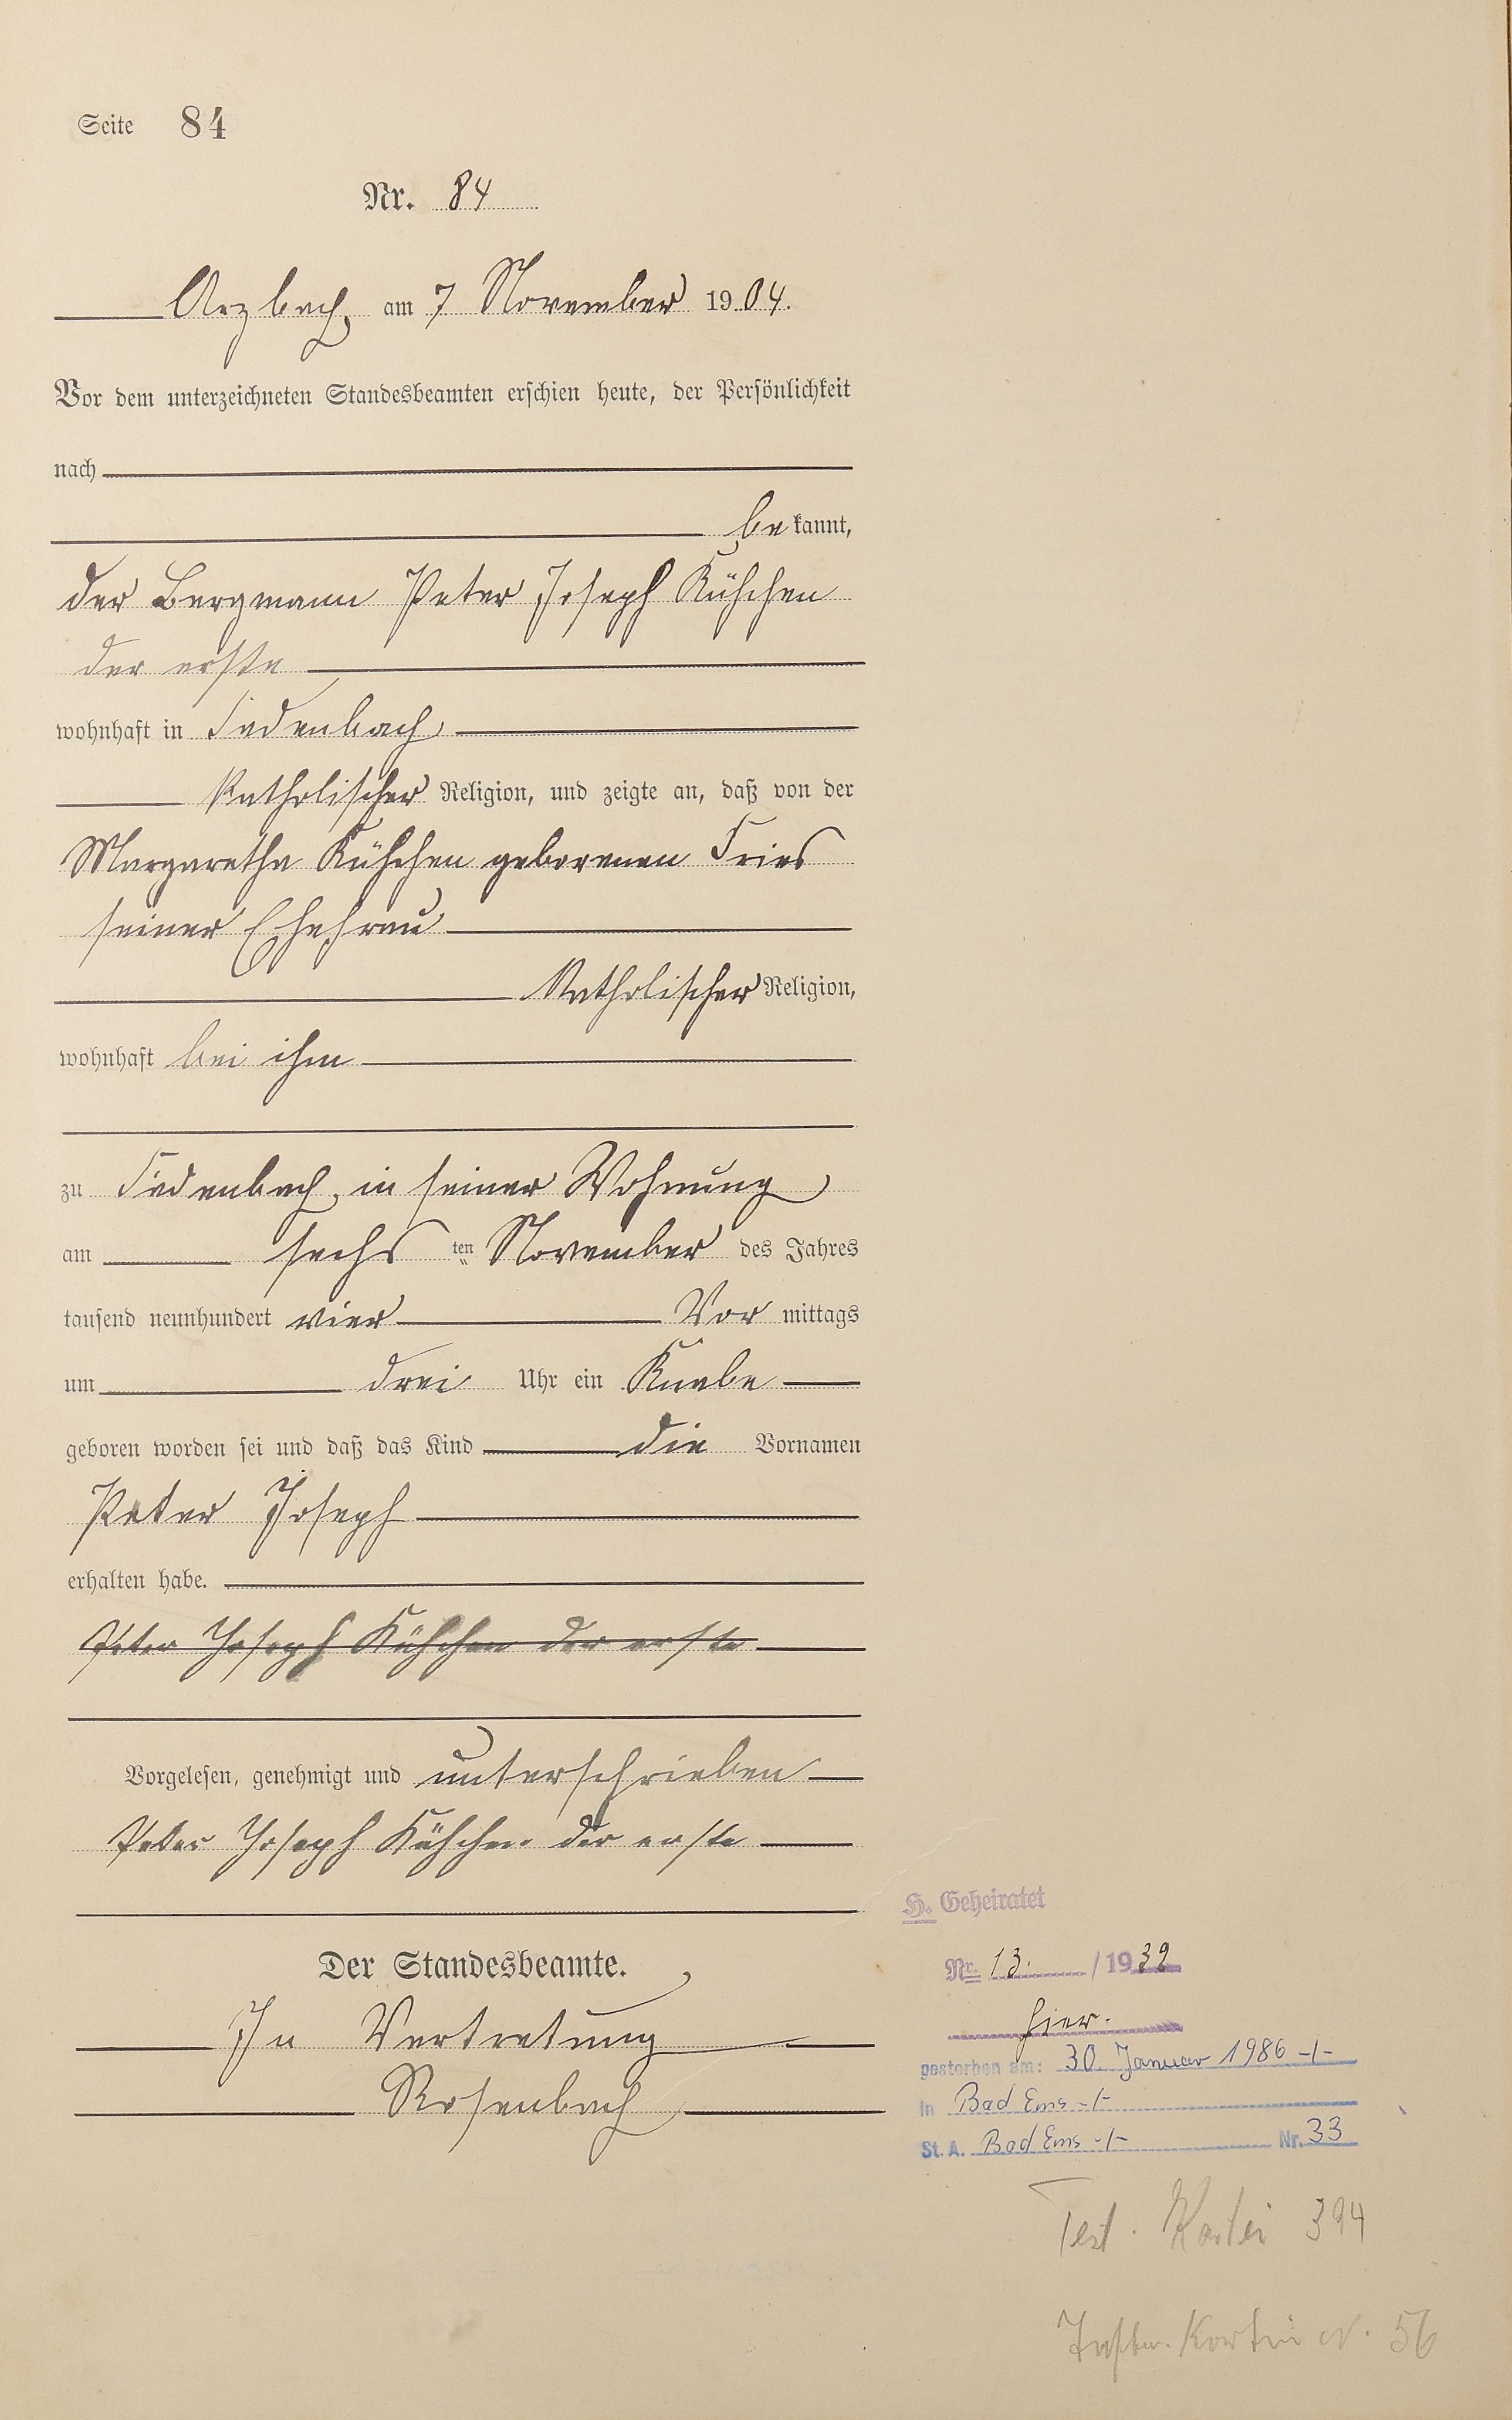 Seite 84
Nr. 84
Arzbach, am 7 November 1904.
Vor dem unterzeichneten Standesbeamten erschien heute, der Persönlichkeit
nach
bekannt,
der Bergmann Peter Joseph Kühchen
der erste
wohnhaft in Fadenbach
Katholischer Religion, und zeigte an, daß von der
Margaretha Kühchen geborenen Fries
seiner Ehefrau
Katholischer Religion,
wohnhaft bei ihm
zu Fadenbach, in seiner Wohnung
am sechsten November des Jahres
tausend neunhundert vier Vormittags
um drei Uhr ein Knabe
geboren worden sei und daß das Kind die Vornamen
Peter Joseph
erhalten habe.
Peter Joseph Kühchen der erste
Vorgelesen, genehmigt und unterschrieben
Peter Joseph Kühchen der erste
Der Standesbeamte.
In Vertretung
Rosenbach
H. Geheiratet
Nr. 13. /1932
hier.
gestorben am: 30. Januar 1986 -/-
in Bad Ems -/-
St. A. Bad Ems -/- Nr. 33
Test. Kartei 394
Kartei N. 56